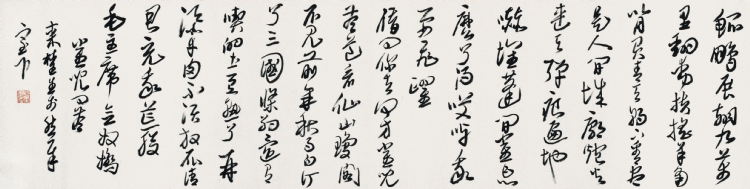 鲲鹏展翅九万
里翻动扶摇羊角
背负青天朝下看都
是人间城郭炮火
连天弹痕遍地
嚇壞蓬间雀怎
麽得了哎呀我
要飞躍
借问你去何方雀儿
答道有仙山琼阁
不见前年秋月白订
了三國條约还有
吃的土豆熟了再
添牛肉不须放屁请
君充我荒腹
毛主席念奴嬌
雀儿问答